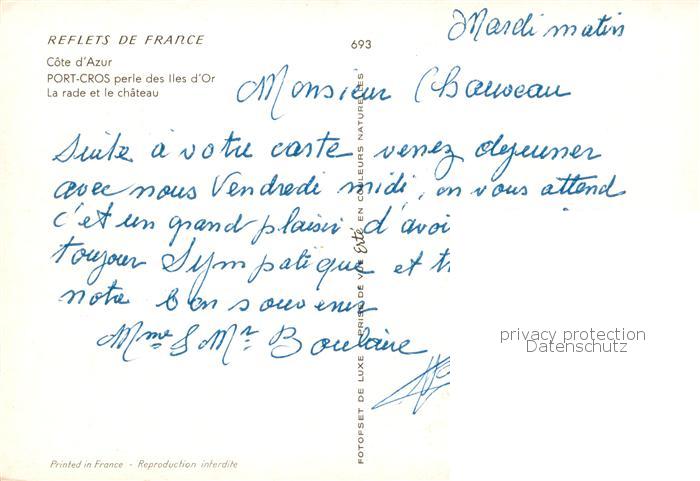 Mardi matin
REFLETS DE FRANCE
693
Côte d'Azur
PORT-CROS perle des Iles d'Or
La rade et le château
Monsieur Chauveau
Suite à votre carte venez dejeuner
avec nous Vendredi midi, on vous attend
c'et un grand plaisir d'avoi
toujour Sympatique et
notre bon souvenir
Mme & Mr Boulaire
privacy protection
Datenschutz
FOTOFSET DE LUXE PRISE DE VUE Erté EN COULEURS NATURELLES
Printed in France - Reproduction interdite